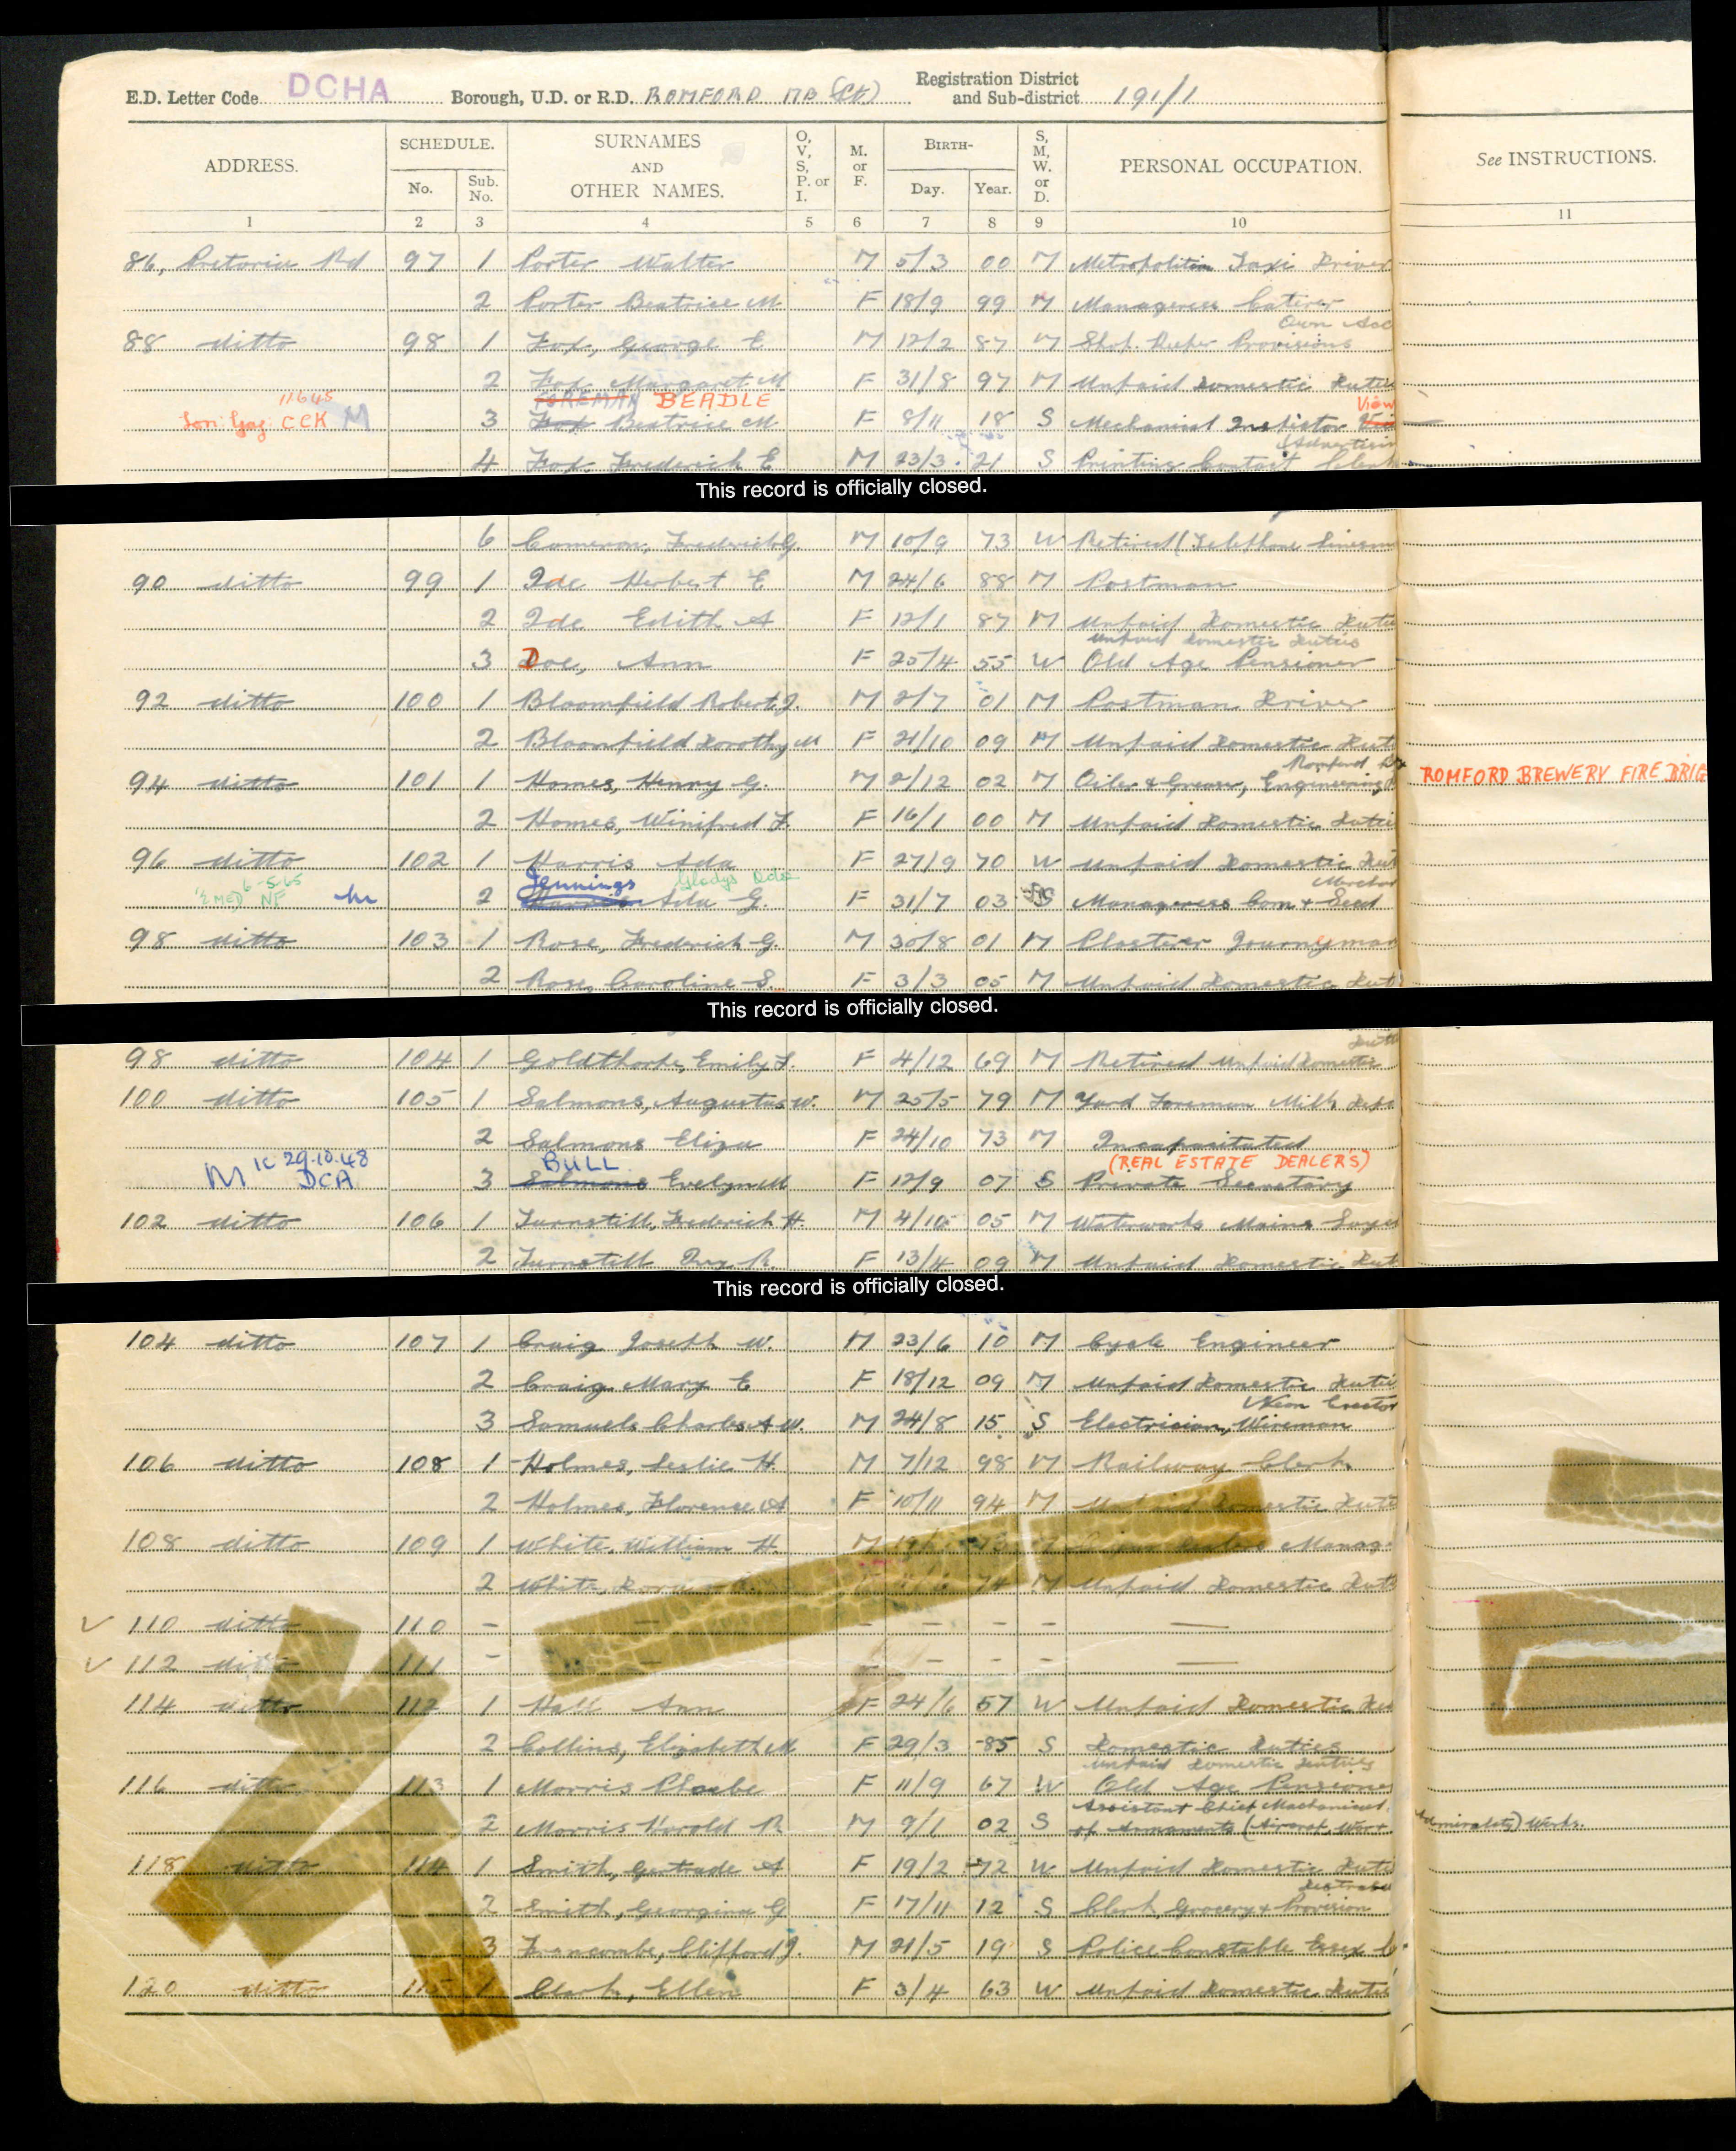 E.D. Letter Code DCHA Borough, U.D. or R.D. ROMFORD MB (Pt) Registration District and Sub-district 191/1
ADDRESS. SCHEDULE. No. Sub. No. SURNAMES AND OTHER NAMES. O, V, S, P. or I. M. or F. BIRTH- Day. Year. S, M, W. or D. PERSONAL OCCUPATION. See INSTRUCTIONS.
1 2 3 4 5 6 7 8 9 10 11
86, Pretoria Rd 97 1 Porter Walter M 5/3 00 M Metropolitan Taxi Driver
2 Porter Beatrice M F 18/9 99 M Manageress Caterer
Own Acc
88 ditto 98 1 Fox, George E M 12/2 87 M Shop Keeper Provisions
2 Fox Margaret M F 31/8 97 M Unpaid Domestic Duties
11645 FOREMAN BEADLE View
CCK M 3 Fox Beatrice M F 8/11 18 S Mechanical Inspector
(Advertising
4 Fox Frederick E M 23/3 21 S Printing Contact Clerk
This record is officially closed.
6 Cameron, Frederick G. M 10/9 73 W Retired (Telephone Linesman
90 ditto 99 1 Ide Herbert E M 24/6 88 M Postman
2 Ide Edith A F 12/1 87 M Unpaid Domestic Duties
Unpaid Domestic Duties
3 Doe, Ann F 25/4 55 W Old Age Pensioner
92 ditto 100 1 Bloomfield Robert J. M 2/7 01 M Postman Driver
2 Bloomfield Dorothy M F 21/10 09 M Unpaid Domestic Dut
Romford
94 ditto 101 1 Homes, Henry G. M 2/12 02 M Oiler & Greaser, Engineering ROMFORD BREWERY FIRE BRIG
2 Homes, Winifred F. F 16/1 00 M Unpaid Domestic Duties
96 ditto 102 1 Harris Ada F 27/9 70 W Unpaid Domestic Dut
6-5-65 Jennings Gladys Merchan
MED NF 2 Ada G. F 31/7 03 S Manageress Corn & Seed
98 ditto 103 1 Rose, Frederick G. M 30/8 01 M Plasterer Journeyman
2 Rose, Caroline S. F 3/3 05 M Unpaid Domestic Dut
This record is officially closed.
98 ditto 104 1 Goldthorpe, Emily F. F 4/12 69 M Retired Unpaid Domestic
100 ditto 105 1 Salmons, Augustus W. M 25/5 79 M Yard Foreman Milk Depo
2 Salmons Eliza F 24/10 73 M Incapacitated
1C 29.10.48 BULL (REAL ESTATE DEALERS)
M DCA 3 Salmons Evelyn M F 12/9 07 S Private Secretary
102 ditto 106 1 Turnstill, Frederick H. M 4/10 05 M Waterworks Mains Layer
2 Turnstill R. F 13/4 09 M Unpaid Domestic Dut
This record is officially closed.
104 ditto 107 1 Craig Joseph W. M 23/6 10 M Cycle Engineer
2 Craig Mary E F 18/12 09 M Unpaid Domestic Duties
(Neon Erector
3 Samuels Charles A W. M 24/8 15 S Electrician, Wireman
106 ditto 108 1 Holmes, Leslie H. M 7/12 98 M Railway Clerk
2 Holmes, Florence A F 10/11 94 M Unpaid Domestic Duti
108 ditto 109 1 White, William H. M 19/ 73 M Manag.
2 White, 74 M Unpaid Domestic Dut
110 ditto 110 - - - - - - -
112 ditto 111 - - - - - - -
114 ditto 112 1 Hall Ann F 24/6 57 W Unpaid Domestic Du
2 Collins, Elizabeth M F 29/3 85 S Domestic Duties
Unpaid Domestic Duties
116 ditto 113 1 Morris Phoebe F 11/9 67 W Old Age Pensioner
Assistant Chief Mechanical
2 Morris Harold R M 9/1 02 S of Armaments (Aircraft, War & Admiralty) Works.
118 ditto 114 1 Smith, Gertrude A F 19/2 72 W Unpaid Domestic Duti
2 Smith, Georgina G F 17/11 12 S Clerk, Grocery & Provision
3 Francombe, Clifford J. M 21/5 19 S Police Constable Essex
120 ditto 115 1 Clark, Ellen F 3/4 63 W Unpaid Domestic Dutie